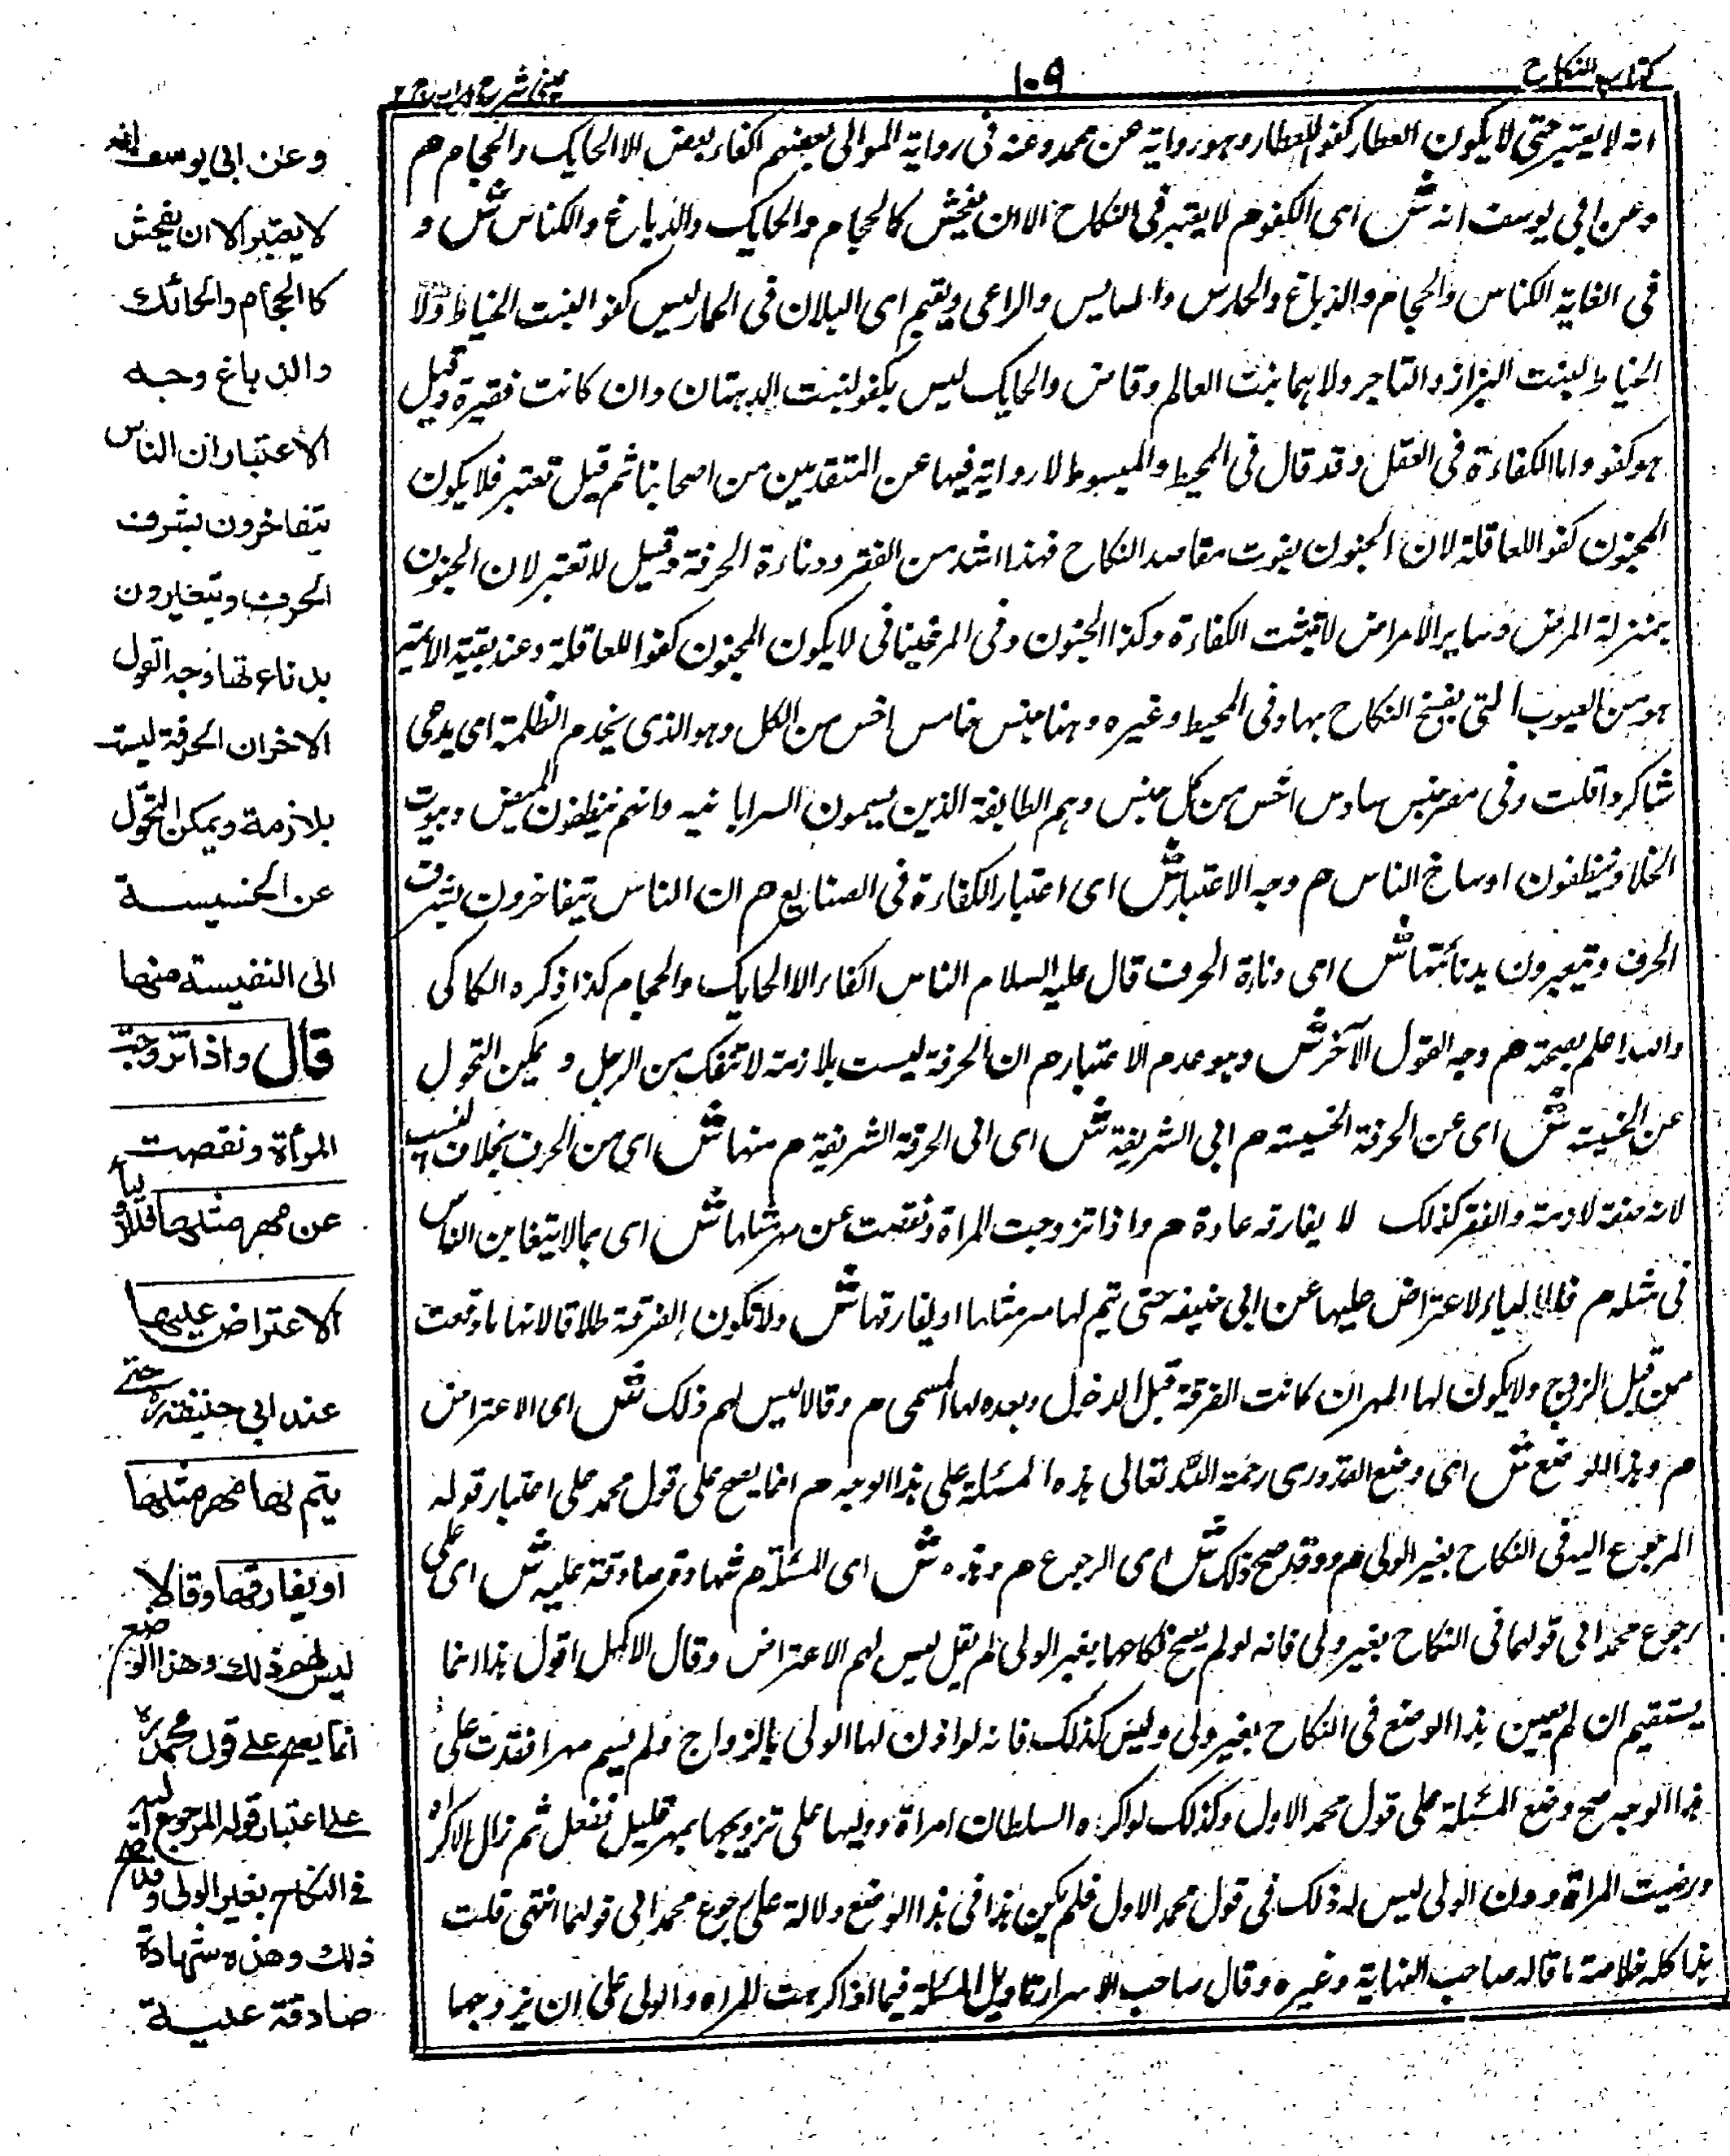 كتاب النكاح
١٠٩
عينى شرح هدايه ج ٢
انه لا يعتبر حتى لا يكون العطار كفوا للعطار وهو رواية عن محمد وعنه فى رواية الموالى بعضهم اكفاء لبعض الا الحايك والحجام هم
وعن ابى يوسف انه ش اى الكفو م لا يعتبر فى النكاح الا ان يفحش كالحجام والحايك والدباغ والكناس ش و
فى الغاية الكناس والحجام والدباغ والحارس والسايس والراعى والقيم اى البلان فى الحمام ليس كفوا لبنت الخياط ولا
الخياط لبنت البزاز والتاجر ولا هما بنت العالم وقاض والحايك ليس بكفو لبنت الدهقان وان كانت فقيرة وقيل
هو كفو واما الكفاءة فى العقل وقد قال فى المحيط والمبسوط لا رواية فيها عن المتقدمين من اصحابنا ثم قيل تعتبر فلا يكون
المجنون كفوا للعاقلة لان الجنون يفوت مقاصد النكاح فهذا اشد من الفقر ودناءة الحرفة وقيل لا تعتبر لان الجنون
بمنزلة المرض وساير الامراض لا يثبت الكفاءة وكذا الجنون وفى المرغينانى لا يكون المجنون كفوا للعاقلة وعند بقية الائمة
هو من العيوب التى يفسخ النكاح بها وفى المحيط وغيره وهنا جنس خامس اخس من الكل وهو الذى يخدم الظلمة اى يدعى
شاكردا قلت وفى مصر جنس سادس اخس من كل جنس وهم الطايفة الذين يسمون السراباتيه وانهم ينظفون وبيوت
الخلا وينظفون اوساخ الناس م وجه الاعتبار ش اى اعتبار الكفارة فى الصنايع م ان الناس يتفاخرون بشرف
الحرف ويتعيرون بدنائتها ش اى دناءة الحرف قال عليه السلام الناس اكفاء الا الحايك والحجام كذا ذكره الكاكى
والله اعلم بصحته م وجه القول الآخر ش وهو عدم الاعتبار م ان الحرفة ليست بلازمة لا تنفك من الرجل و يمكن التحول
عن الخسيسة ش اى عن الحرفة الخسيسة م الى الشريفة ش اى الى الحرفة الشريفة م منها ش اى من الحرف بخلاف النسب
لانه صفة لازمة والفقر كذلك لا يفارقه عادة م واذا تزوجت المراة ونقصت عن مهر مثلها ش اى بما لا يتغابن الناس
فى مثله م فللاولياء الاعتراض عليها عن ابى حنيفه حتى يتم لها مهر مثلها او يفارقها ش ولا تكون الفرقة طلاقا لانها ما وقعت
من قبل الزوج ولا يكون لها المهر ان كانت الفرقة قبل الدخول وبعده لها المسمى م وقالا ليس لهم ذلك ش اى الاعتراض
م وهذا الوضع ش اى وضع القدورى رحمة الله تعالى هذه المسئلة على هذا الوجه م انما يصح على قول محمد على اعتبار قوله
المرجوع اليه فى النكاح بغير الولى م ووقد صح ذلك ش اى الرجوع م وهذه ش اى المسئلة م شهادة صادقة عليه ش اى على
رجوع محمد الى قولهما فى النكاح بغير ولى فانه لو لم يصح نكاحها بغير الولى لم يقل ليس لهم الاعتراض وقال الاكمل اقول هذا انما
يستقيم ان لم يعين هذا الوضع فى النكاح بغير ولى وليس كذلك فانه لو اذن لها الولى بالزواج ولم يسم مهرا فعقدت على
هذا الوجه صح وضع المسئلة على قول محمد الاول وكذلك لو اكره السلطان امراة ووليها على تزويجها بمهر قليل ففعل ثم زال الاكراه
ورضيت المراة دون الولى ليس له ذلك فى قول محمد الاول فلم يكن هذا فى هذا الوضع دلالة على رجوع محمد الى قولهما انتهى قلت
هذا كله خلاصة ما قاله صاحب النهاية وغيره وقال صاحب الاسرار تاويل المسئلة فيما اذا اكرهت المراه والولى على ان يزوجها
وعن ابى يوسف انه
لا يعتبر الا ان يفحش
كالحجام والحائك
والدباغ وجه
الاعتبار ان الناس
يتفاخرون بشرف
الحرف ويتعيرون
بدناءتها وجه القول
الاخر ان الحرفة ليست
بلازمة ويمكن التحول
عن الخسيسة
الى النفيسة منها
قال واذا تزوجت
المرأة ونقصت
عن مهر مثلها فللاولياء
الاعتراض عليها
عند ابى حنيفة ره حتى
يتم لها مهر مثلها
او يفارقها وقالا
ليس لهم ذلك وهذا الوضع
انما يصح على قول محمد ره
على اعتبار قوله المرجوع اليه
فى النكاح بغير الولى وقد صح
ذلك وهذه شهادة
صادقة عليه